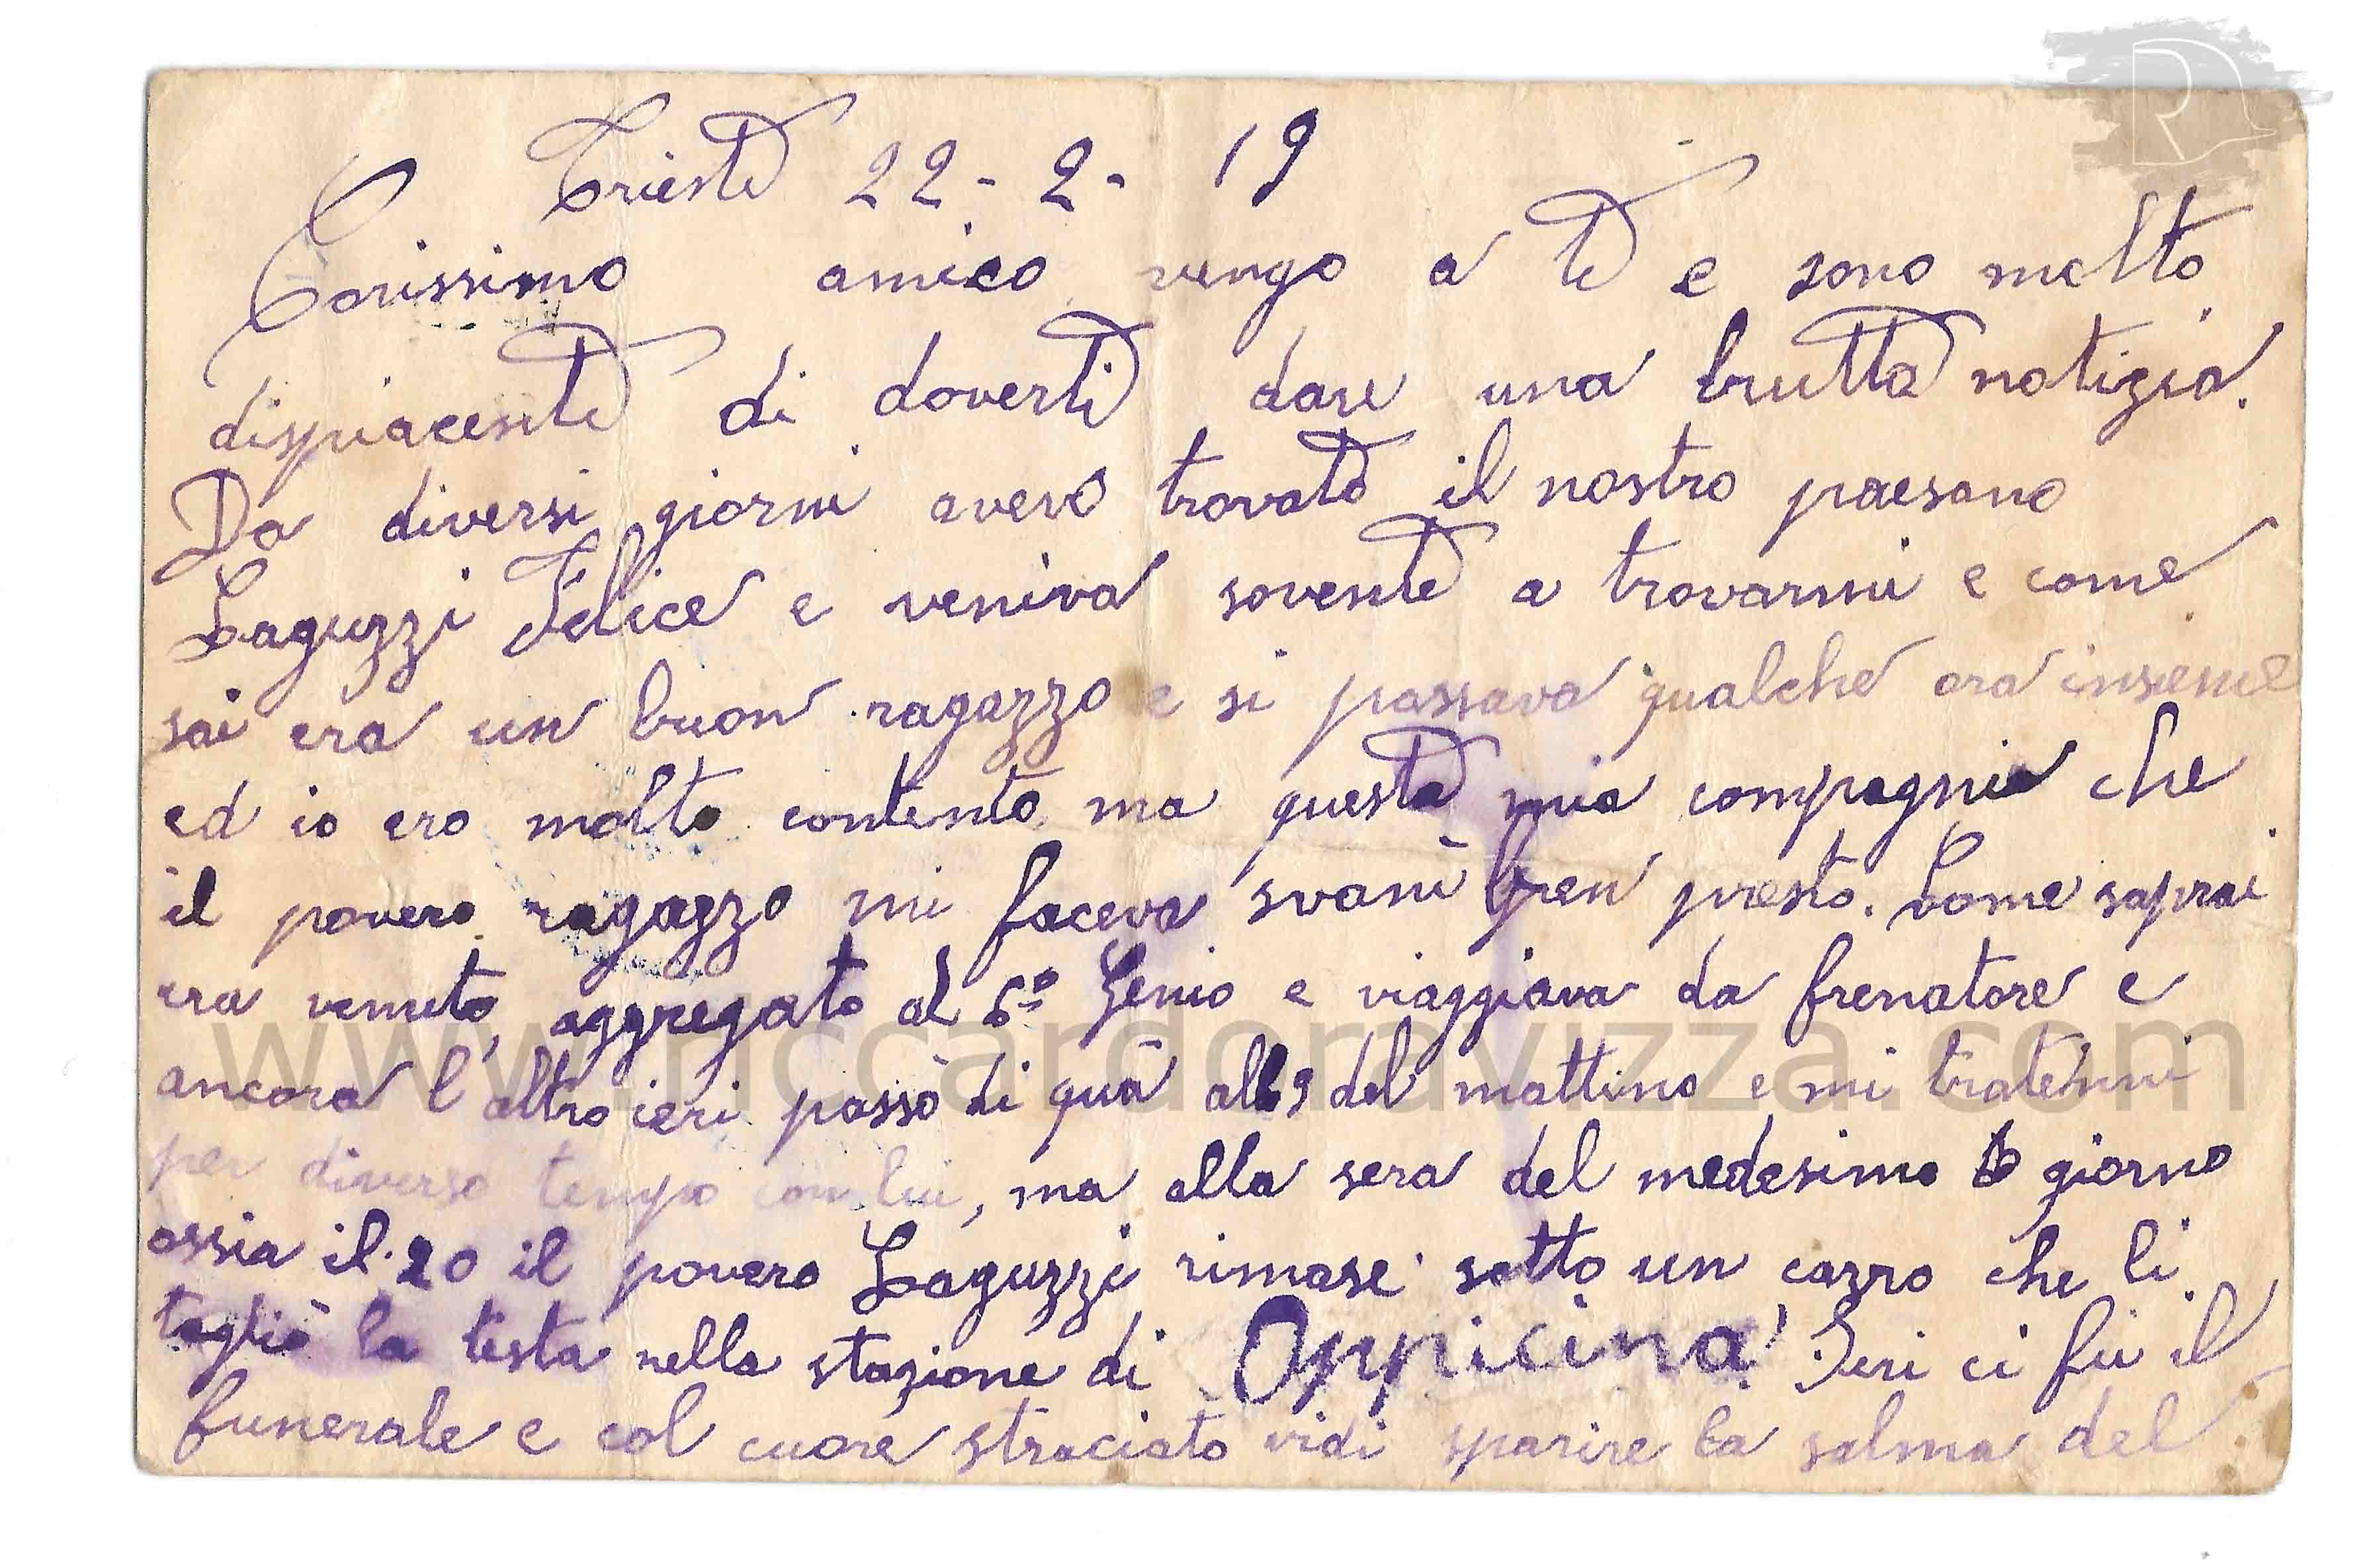 Trieste 22-2-19
Carissimo amico vengo a te e sono molto
dispiacente di doverti dare una brutta notizia.
Da diversi giorni avevo trovato il nostro paesano
Laguzzi Felice e veniva sovente a trovarmi e come
sai era un buon ragazzo e si passava qualche ora insieme
ed io ero molto contento, ma questa mia compagnia che
il povero ragazzo mi faceva svanì ben presto. Come saprai
era venuto, aggregato al 6º Genio e viaggiava da frenatore e
ancora l'altro ieri passò di quà alle 9 del mattino e mi tratenni
per diverso tempo con lui, ma alla sera del medesimo giorno
ossia il 20 il povero Laguzzi rimase sotto un carro che li
tagliò la testa nella stazione di Oppicina! Ieri ci fù il
funerale e col cuore straciato vidi sparire la salma del
www.riccardoravizza.com